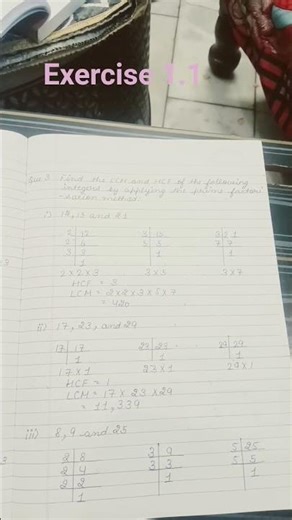 Exercise 1.1
Que 3 Find the LCM and HCF of the following
integers by applying the prime factori
-zation method.
i) 12, 15 and 21
2 12 3 15 3 21
2 6 5 5 7 7
3 3 1 1
1
2×2×3 3×5 3×7
HCF = 3
LCM = 2×2×3×5×7
= 420
ii) 17, 23, and 29
17 17 23 23 29 29
1 1 1
17×1 23×1 29×1
HCF = 1
LCM = 17×23×29
= 11,339
iii) 8, 9 and 25
2 8 3 9 5 25
2 4 3 3 5 5
2 2 1 1
1